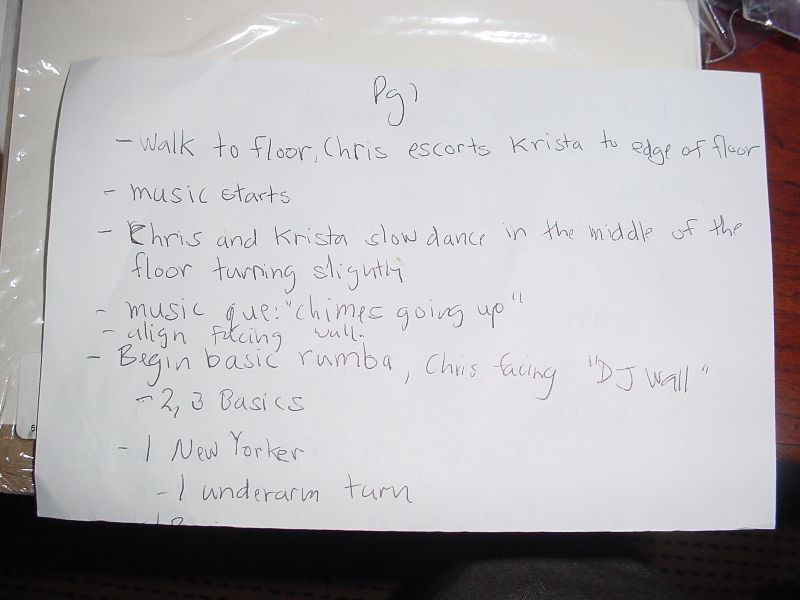 Pg 1
- Walk to floor, Chris escorts Krista to edge of floor
- music starts
- Chris and Krista slow dance in the middle of the
floor turning slightly
- music que: "chimes going up"
- align facing wall.
- Begin basic rumba, Chris facing "DJ wall"
- 2, 3 Basics
- 1 New Yorker
- 1 underarm turn